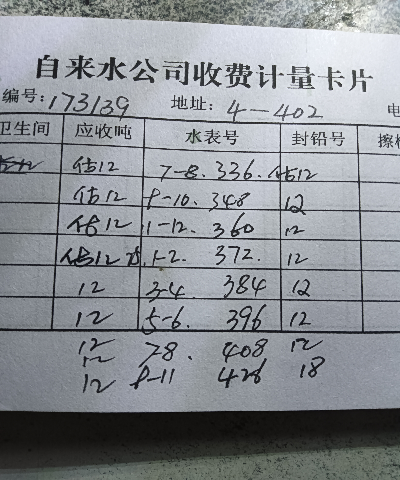 自来水公司收费计量卡片
编号:173139 地址:4-402 电
卫生间 应收吨 水表号 封铅号 擦
估12 7-8. 336. 估12
估12 9-10. 348 12
估12 11-12. 360 12
估12 1-2. 372. 12
12 3-4. 384 12
12 5-6. 396 12
12 7-8. 408 12
12 9-11 426 18